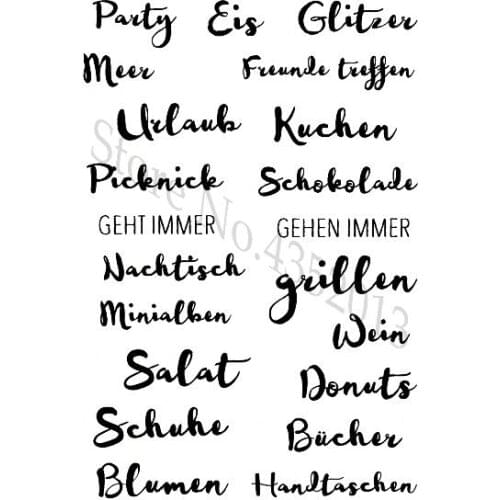 Party Eis Glitzer
Meer Freunde treffen
Urlaub Kuchen
Picknick Schokolade
GEHT IMMER GEHEN IMMER
Nachtisch grillen
Minialben Wein
Salat Donuts
Schuhe Bücher
Blumen Handtaschen
Store No.4352013